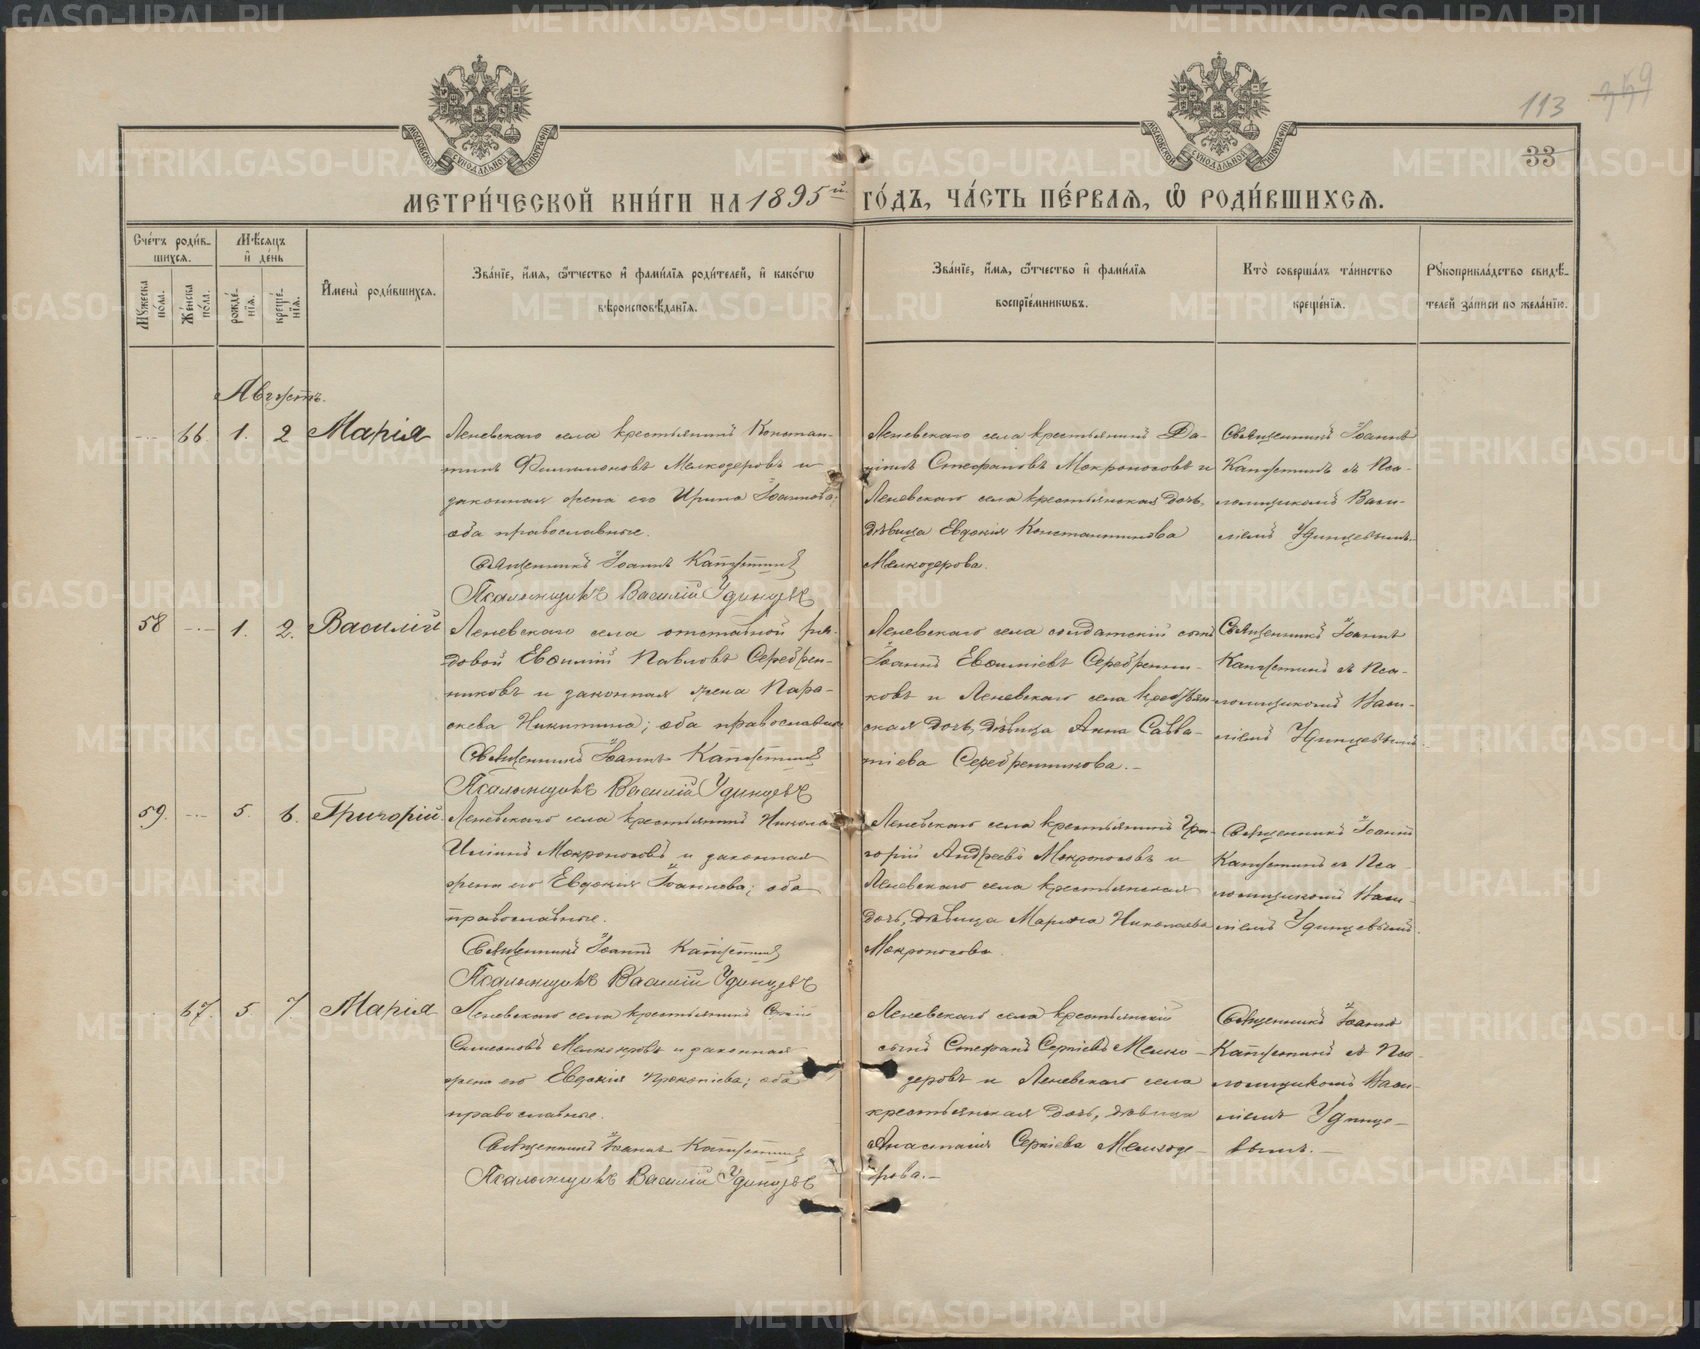 113
359
33
МОСКОВСКОЙ СѴНОДАЛЬНОЙ ТИПОГРАФІИ
МОСКОВСКОЙ СѴНОДАЛЬНОЙ ТИПОГРАФІИ
МЕТРИ́ЧЕСКОЙ КНИ́ГИ НА 1895й ГО́ДЪ, ЧА́СТЬ ПЕ́РВАѦ, Ѡ РОДИ́ВШИХСѦ.
Сче́тъ роди́в-
шихсѧ.
Мѣ́сяцъ
и҆ де́нь
Мꙋ́жеска по́ла.
Же́нска по́ла.
рожде́нїѧ.
креще́нїѧ.
И҆мена̀ роди́вшихсѧ.
Зва́нїе, и҆́мѧ, ѻ҆́тчество и҆ фами́лїѧ роди́телей, и҆ како́гѡ
вѣроисповѣ́данїѧ.
Зва́нїе, и҆́мѧ, ѻ҆́тчество и҆ фами́лїѧ
воспрїе́мникѡвъ.
Кто̀ соверша́лъ та́инство
креще́нїѧ.
Рꙋкоприкла́дство свидѣ́-
телей за́писи по жела́нїю.
Августъ.
66. 1. 2 Марія
Леневскаго села крестьянинъ Констан-
тинъ Филимоновъ Мелкозеровъ и
законная жена его Ирина Іоаннова;
оба православные.
Священникъ Іоаннъ Капустинъ
Псаломщикъ Василій Удинцевъ
Леневскаго села крестьянинъ Да-
ніилъ Стефановъ Мокроносовъ и
Леневскаго села крестьянская дочь,
дѣвица Евдокія Константинова
Мелкозерова.
Священникъ Іоаннъ
Капустинъ съ Пса-
ломщикомъ Васи-
ліемъ Удинцевымъ.
58 1. 2. Василій
Леневскаго села отставной ря-
довой Евѳимій Павловъ Серебрен-
никовъ и законная жена Пара-
скева Никитина; оба православные
Священникъ Іоаннъ Капустинъ
Псаломщикъ Василій Удинцевъ
Леневскаго села солдатскій сынъ
Іоаннъ Евѳиміевъ Серебренни-
ковъ и Леневскаго села крестьян
ская дочь, дѣвица Анна Савва-
тіева Серебренникова.
Священникъ Іоаннъ
Капустинъ съ Пса-
ломщикомъ Васи-
ліемъ Удинцевымъ.
59. 5. 6. Григорій
Леневскаго села крестьянинъ Никола
Иліинъ Мокроносовъ и законная
жена его Евдокія Іоаннова; оба
православные.
Священникъ Іоаннъ Капустинъ
Псаломщикъ Василій Удинцевъ
Леневскаго села крестьянинъ Гри-
горій Андреевъ Мокроносовъ и
Леневскаго села крестьянская
дочь, дѣвица Николаева
Мокроносова.
Священникъ Іоаннъ
Капустинъ съ Пса-
ломщикомъ Васи-
ліемъ Удинцевымъ.
67. 5. 7. Марія
Леневскаго села крестьянинъ
Симеоновъ Мелкозеровъ и законная
жена его Евдокія Прокопіева; оба
православные.
Священникъ Іоаннъ Капустинъ
Псаломщикъ Василій Удинцевъ
Леневскаго села крестьянскій
сынъ Стефанъ Сергіевъ Мелко-
зеровъ и Леневскаго села
крестьянская дочь, дѣвица
Анастасія Сергіева Мелкозе-
рова.
Священникъ Іоаннъ
Капустинъ съ Пса-
ломщикомъ Васи-
ліемъ Удинце-
вымъ.
METRIKI.GASO-URAL.RU